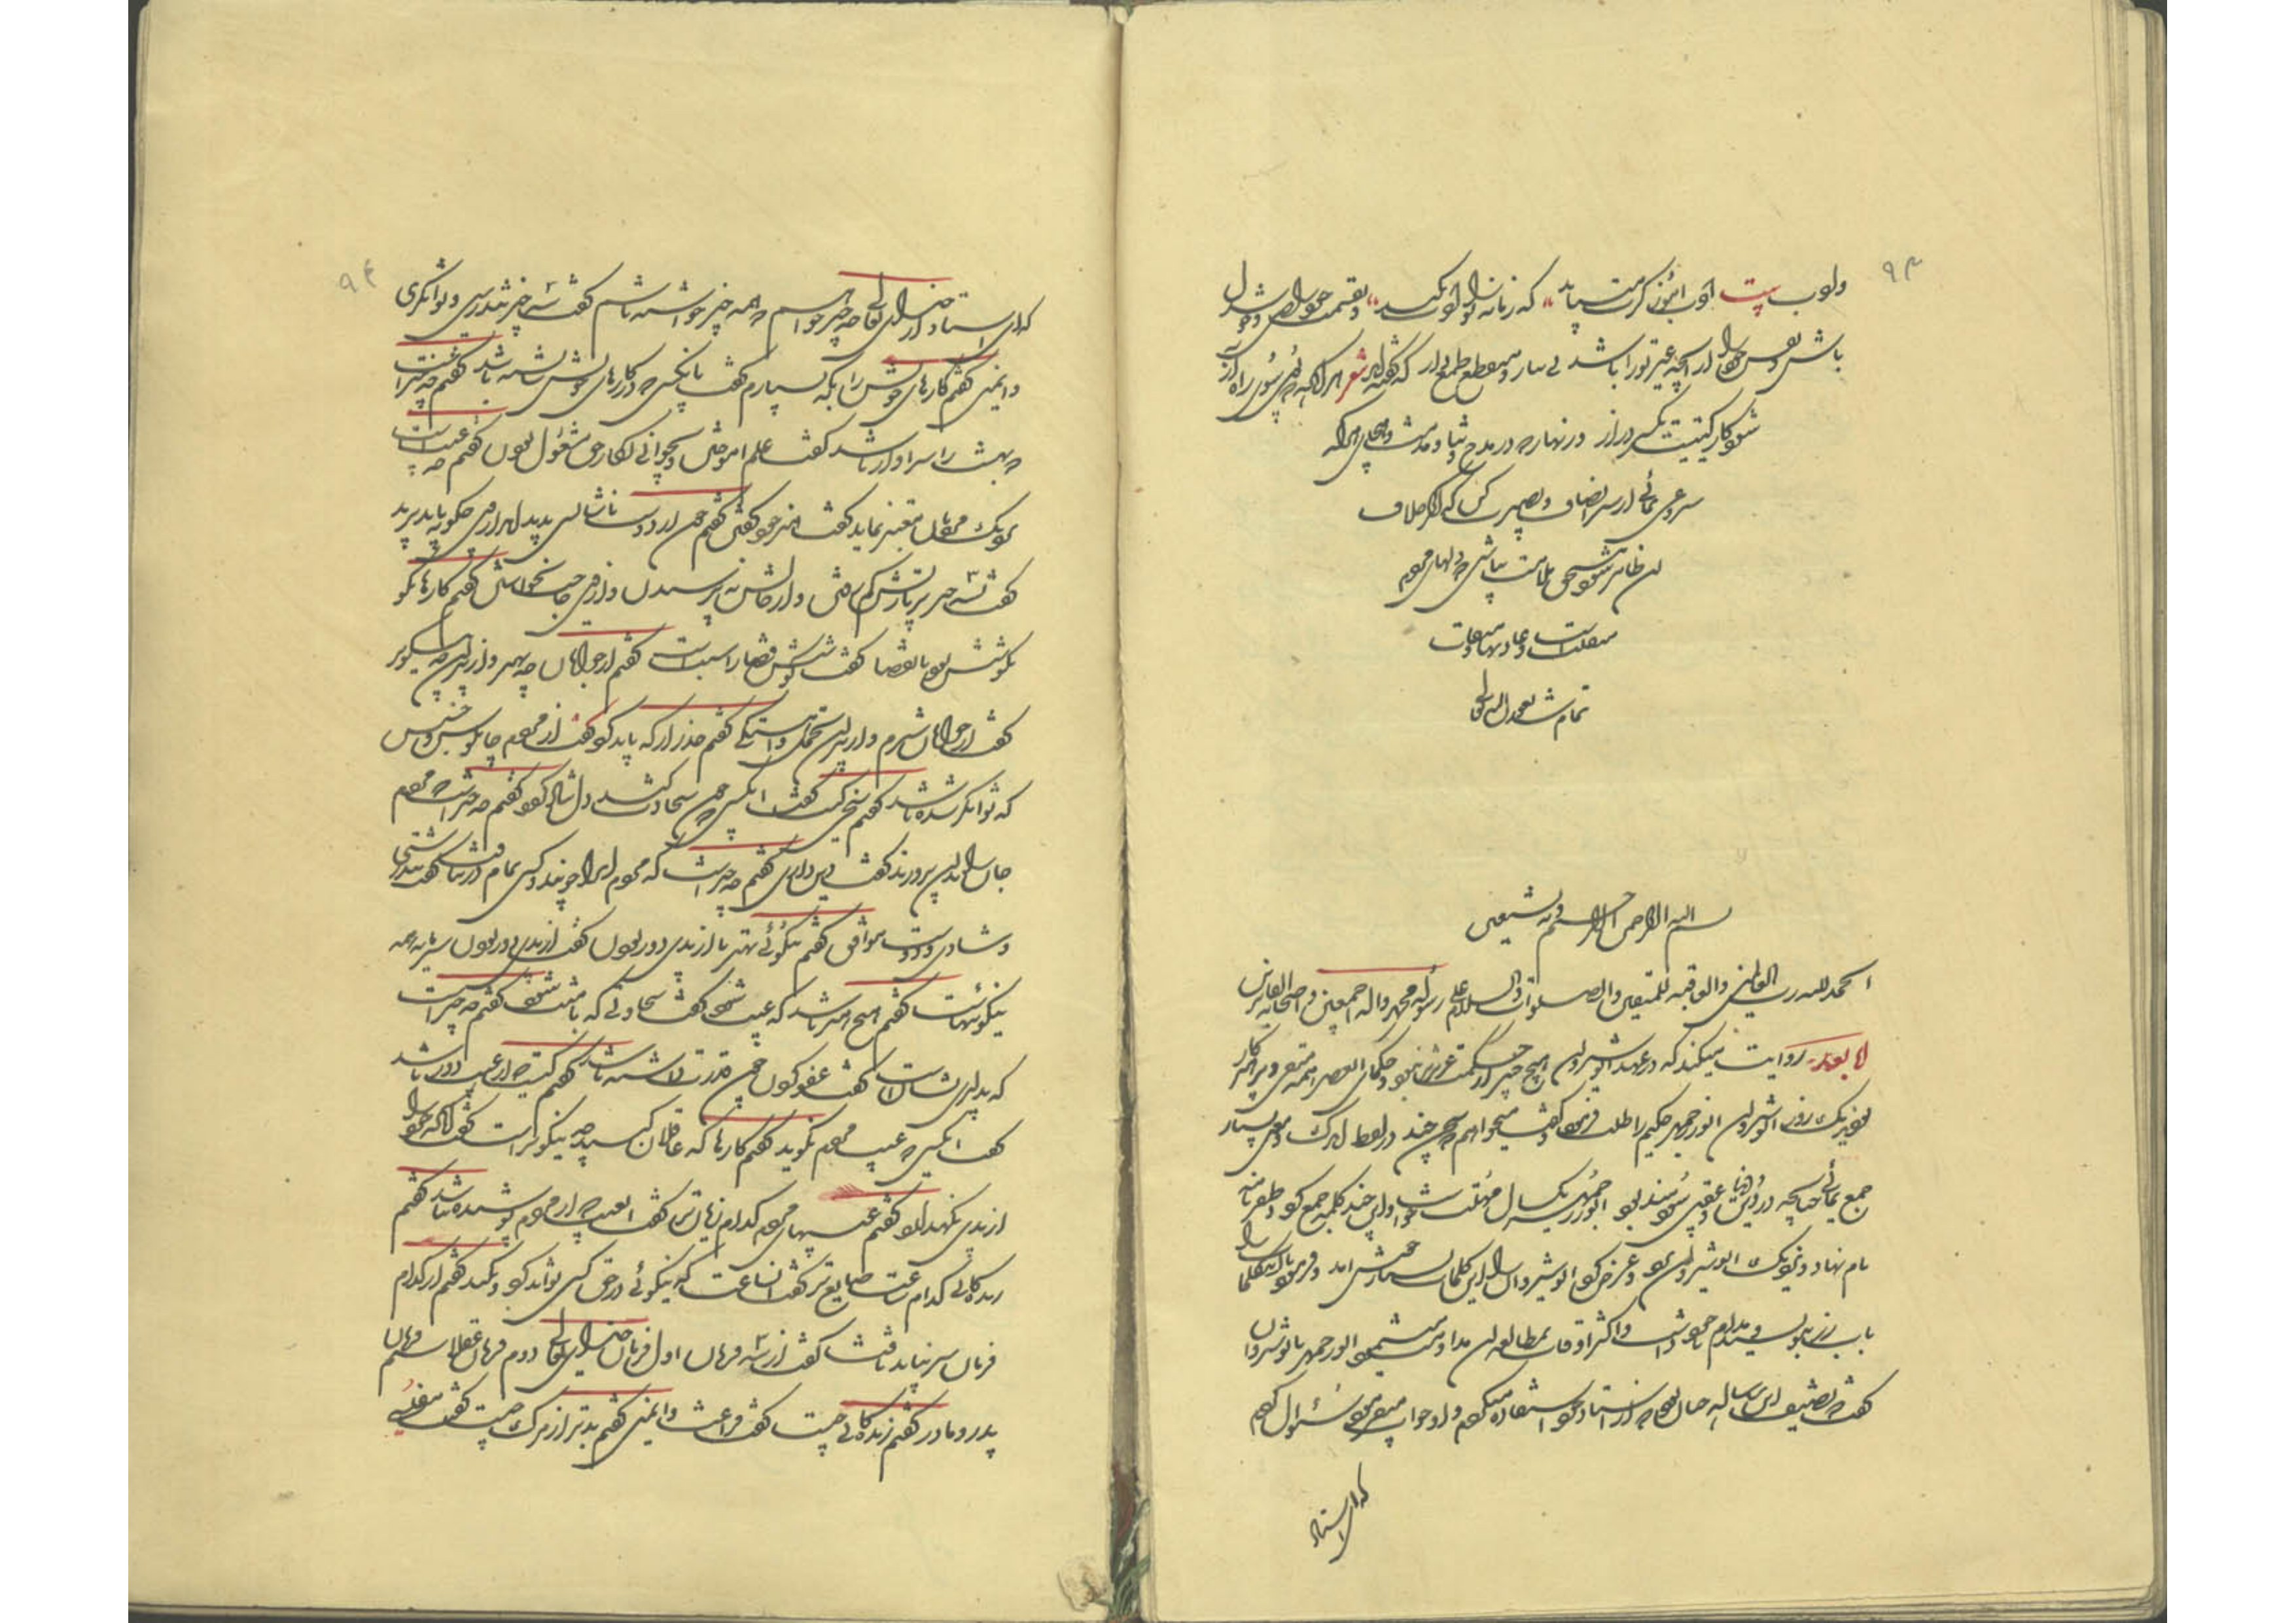 ۹۳
وادب بیت ادب آموز کرت می‌باید که زمانه را ادب نکند و بقسمت خود راضی و خوشدل
باش و نفس خود را از آنچه غیر تو را باشد بی نیاز و منقطع طمع دار که گفته‌اند شعر هر کرا که
شود کار گیتیت یکسر دراز و زنهار که در مدح و ثنا و مذمت و هجای هر که
سر وعی نمائی از سر انصاف و بصیرت کن که اگر خلاف
آن ظاهر شود مستحق ملامت باشی که دلهای مردم
متقلب است و عادتها متفاوت
تمام شد بعون الله تعالی
بسم الله الرحمن الرحیم وبه نستعین
الحمد لله رب العالمین والعاقبة للمتقین والصلوة والسلام علی رسوله محمد واله اجمعین و اصحابه
اما بعد روایت میکنند که در عهد انوشیروان هیچ چیز از حکمت عزیزتر نبود و حکمای العصر همه متقی و پرهیزکار
بودند یک روز انوشیروان ابوذرجمهر حکیم را طلب فرمود و گفت میخواهم که سخنی چند در لفظ اندک و معنی بسیار
جمع نمائی چنانچه در دنیا و عقبی سودمند بود ابوذرجمهر یک سال مهلت خواست و این چند کلمه جمع کرد و ظفرنامه
نام نهاد و بنزدیک انوشیروان برد و عرض کرد انوشیروان را این کلمات بسیار خوش آمد و فرمود تا این کلمات را
باب زر بنویسند مدام با خود داشت و اکثر اوقات بمطالعه آن مداومت مینمود ابوذرجمهر با نوشروان
گفت که تصنیف این رساله چنان بود که از استاد خود استفاده میکردم و او جواب میفرمود سئوال کردم
که ای استاد
۹۴
که ای استاد از خدای تعالی چه چیز خواهم که همه چیز خواسته باشم گفت سه چیز تندرستی و توانگری
و ایمنی گفتم کارهای خویش را بکه سپارم گفت بانکس که در کارهای خویش شایسته باشد گفتم چه چیز است
که بهشت را سزاوار باشد گفت علم آموختن و بجوانی بکار حق مشغول بودن گفتم چه عیب است
که نزدیک مردمان معتبر نماید گفت هنر خود گفتن گفتم چون از دوست ناشایسته پدید آید از وی چگونه باید برید
گفت بسه چیز بزیارتش کم رفتن و از حالش نه پرسیدن و از وی حاجت نخواستن گفتم کارها نکو
بکوشش بود یا بقضا گفت کوشش قضا را سبب است گفتم از جوانان چه بهتر و از پیران چه نیکوتر
گفت از جوانان شرم و از پیران تحمل و آهستگی گفتم حذر از که باید کرد گفت از مردم چاپلوس و خسیس
که توانگر شده باشد گفتم سخی کیست گفت آنکس که چون سخاوت کند دل شاد گردد گفتم چه چیز است که مردم
جان را بدان پرورند گفت دین و آئین گفتم چه چیز است که مردم آنرا جویند و کسی تمام در نیافت گفت تندرستی
و شادی و دوست موافق گفتم نیکوئی بهتر یا از بدی دور بودن گفت از بدی دور بودن سرمایه همه
نیکوئیهاست گفتم هیچ هنر باشد که عیب شود گفت سخاوتی که با منت شود گفتم چه چیز است
که بدلیری نشان است گفت عفو کردن چون قدرت داشته باشد گفتم کیست که از عیب دور باشد
گفت آنکس که عیب مردم نگوید گفتم کارها که عاقلان کنند چه نیکوتر است گفت آنکه خود را
از بدی نگهدارد گفتم عیبهای مردم کدام زیان‌تر گفت آن عیب که از مردم پوشیده باشد گفتم
زندگانی کدام ساعت ضایع تر گفت آن ساعت که نیکوئی در حق کسی تواند کرد و نکند گفتم از کدام
فرمان سر نباید تافت گفت از سه فرمان اول فرمان خدای تعالی دوم فرمان عقلا سیم فرمان
پدر و مادر گفتم زندگانی چیست گفت فراغت و ایمنی گفتم بدتر از مرگ چیست گفت مفلسی